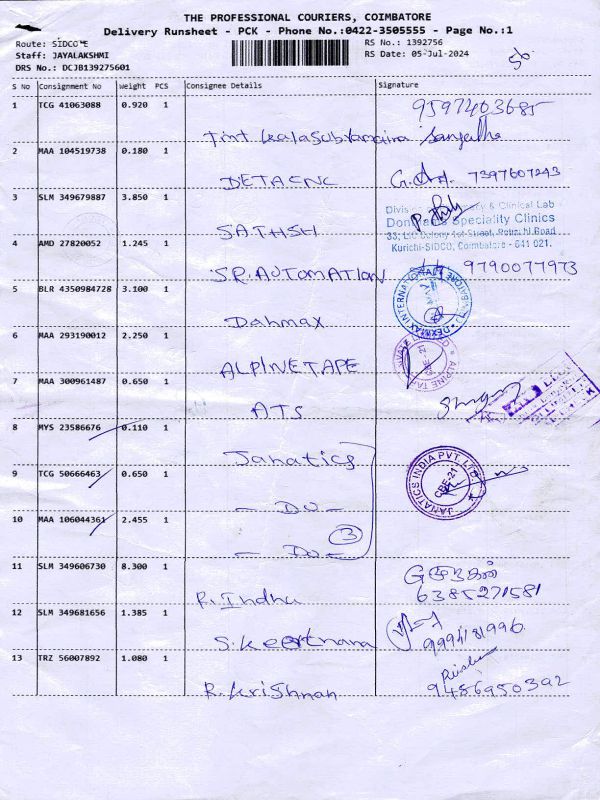 THE PROFESSIONAL COURIERS, COIMBATORE
Delivery Runsheet - PCK - Phone No.:0422-3505555 - Page No.:1
Route: SIDCO
Staff: JAYALAKSHMI
DRS No.: DCJB139275601
RS No.: 1392756
RS Date: 05-Jul-2024
S No Consignment No Weight PCS Consignee Details Signature
1 TCG 41063088 0.920 1 9597403685
Tmt
2 MAA 104519738 0.180 1
DETACNC 7397607243
3 SLM 349679887 3.850 1
SATHSH
& Clinical Lab
Speciality Clinics
Kurichi-SIDCO, Coimbatore - 641 021.
4 AMD 27820052 1.245 1
SR.AUTOMATION 9790077973
5 BLR 4350984728 3.100 1
Dahmax
DEXMAX INTERNATIONAL
6 MAA 293190012 2.250 1
ALPINE TAPE
ALPINE CBE-21
7 MAA 300961487 0.650 1
ATS
8 MYS 23586676 0.110 1
Janatics
9 TCG 50666463 0.650 1
- Do -
JANATICS INDIA PVT LTD. CBE-21
10 MAA 106044361 2.455 1
3
- Do -
11 SLM 349606730 8.300 1
R. Indhu 6385271581
12 SLM 349681656 1.385 1
S. Keerthana 9994181996
13 TRZ 56007892 1.080 1
R. Krishnan 9486950392